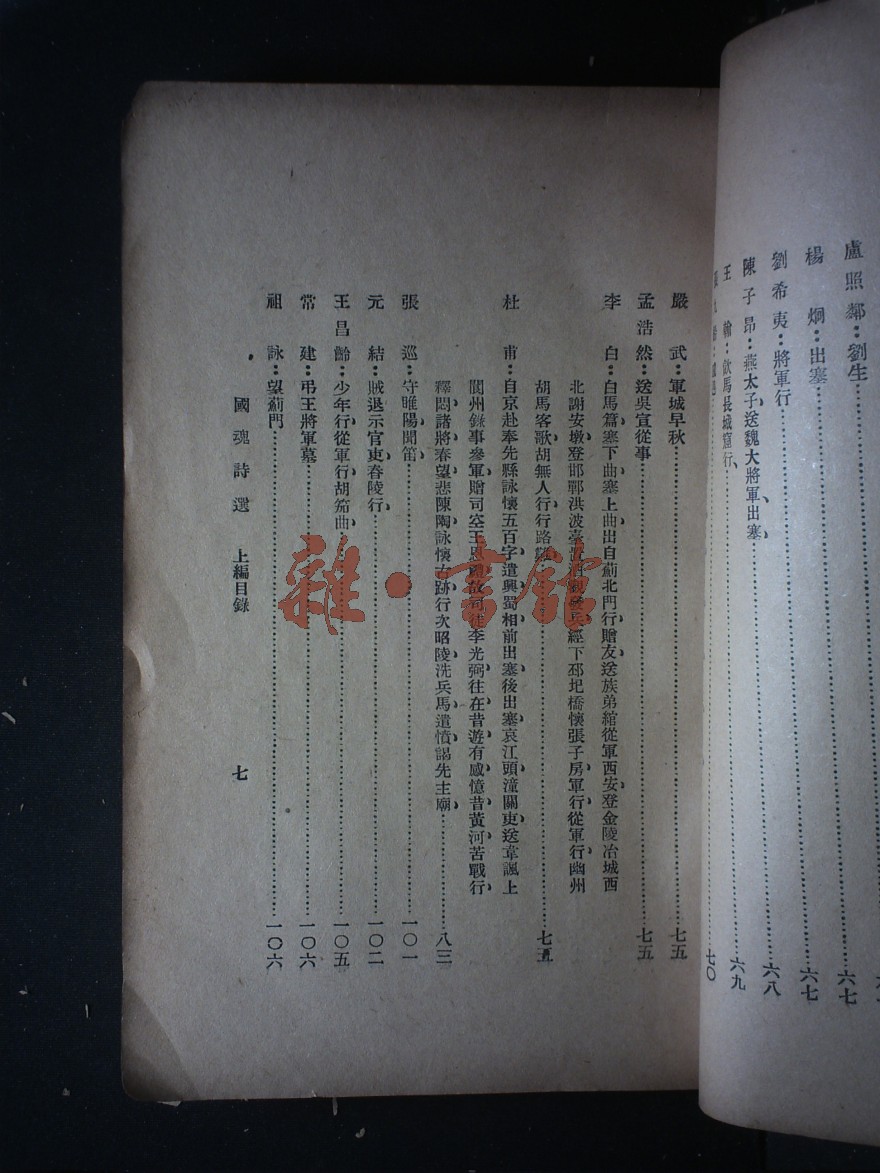 盧照鄰：劉生……六七
楊　炯：出塞……六七
劉希夷：將軍行……六八
陳子昂：燕太子、送魏大將軍出塞……六九
王　翰：飲馬長城窟行、
七〇
嚴　武：軍城早秋……七五
孟浩然：送吳宣從事……七五
李　白：白馬篇、塞下曲、塞上曲、出自薊北門行、贈友、送族弟綰從軍西安、登金陵冶城西
北謝安墩、登邯鄲洪波臺置酒觀發兵、經下邳圯橋懷張子房、軍行、從軍行、幽州
胡馬客歌、胡無人行、行路難……七五
杜　甫：自京赴奉先縣詠懷五百字、遣興、蜀相、前出塞、後出塞、哀江頭、潼關吏、送韋諷上
閬州錄事參軍、贈司空王思禮、故司徒李光弼、往在、昔遊、有感、憶昔、黃河、苦戰行、
釋悶、諸將、春望、悲陳陶、詠懷古跡、行次昭陵、洗兵馬、遣憤、謁先主廟……八三
張　巡：守睢陽、聞笛……一〇一
元　結：賊退示官吏、舂陵行……一〇二
王昌齡：少年行、從軍行、胡笳曲……一〇五
常　建：弔王將軍墓……一〇六
祖　詠：望薊門……一〇六
國魂詩選　上編目錄　七
雜·書館